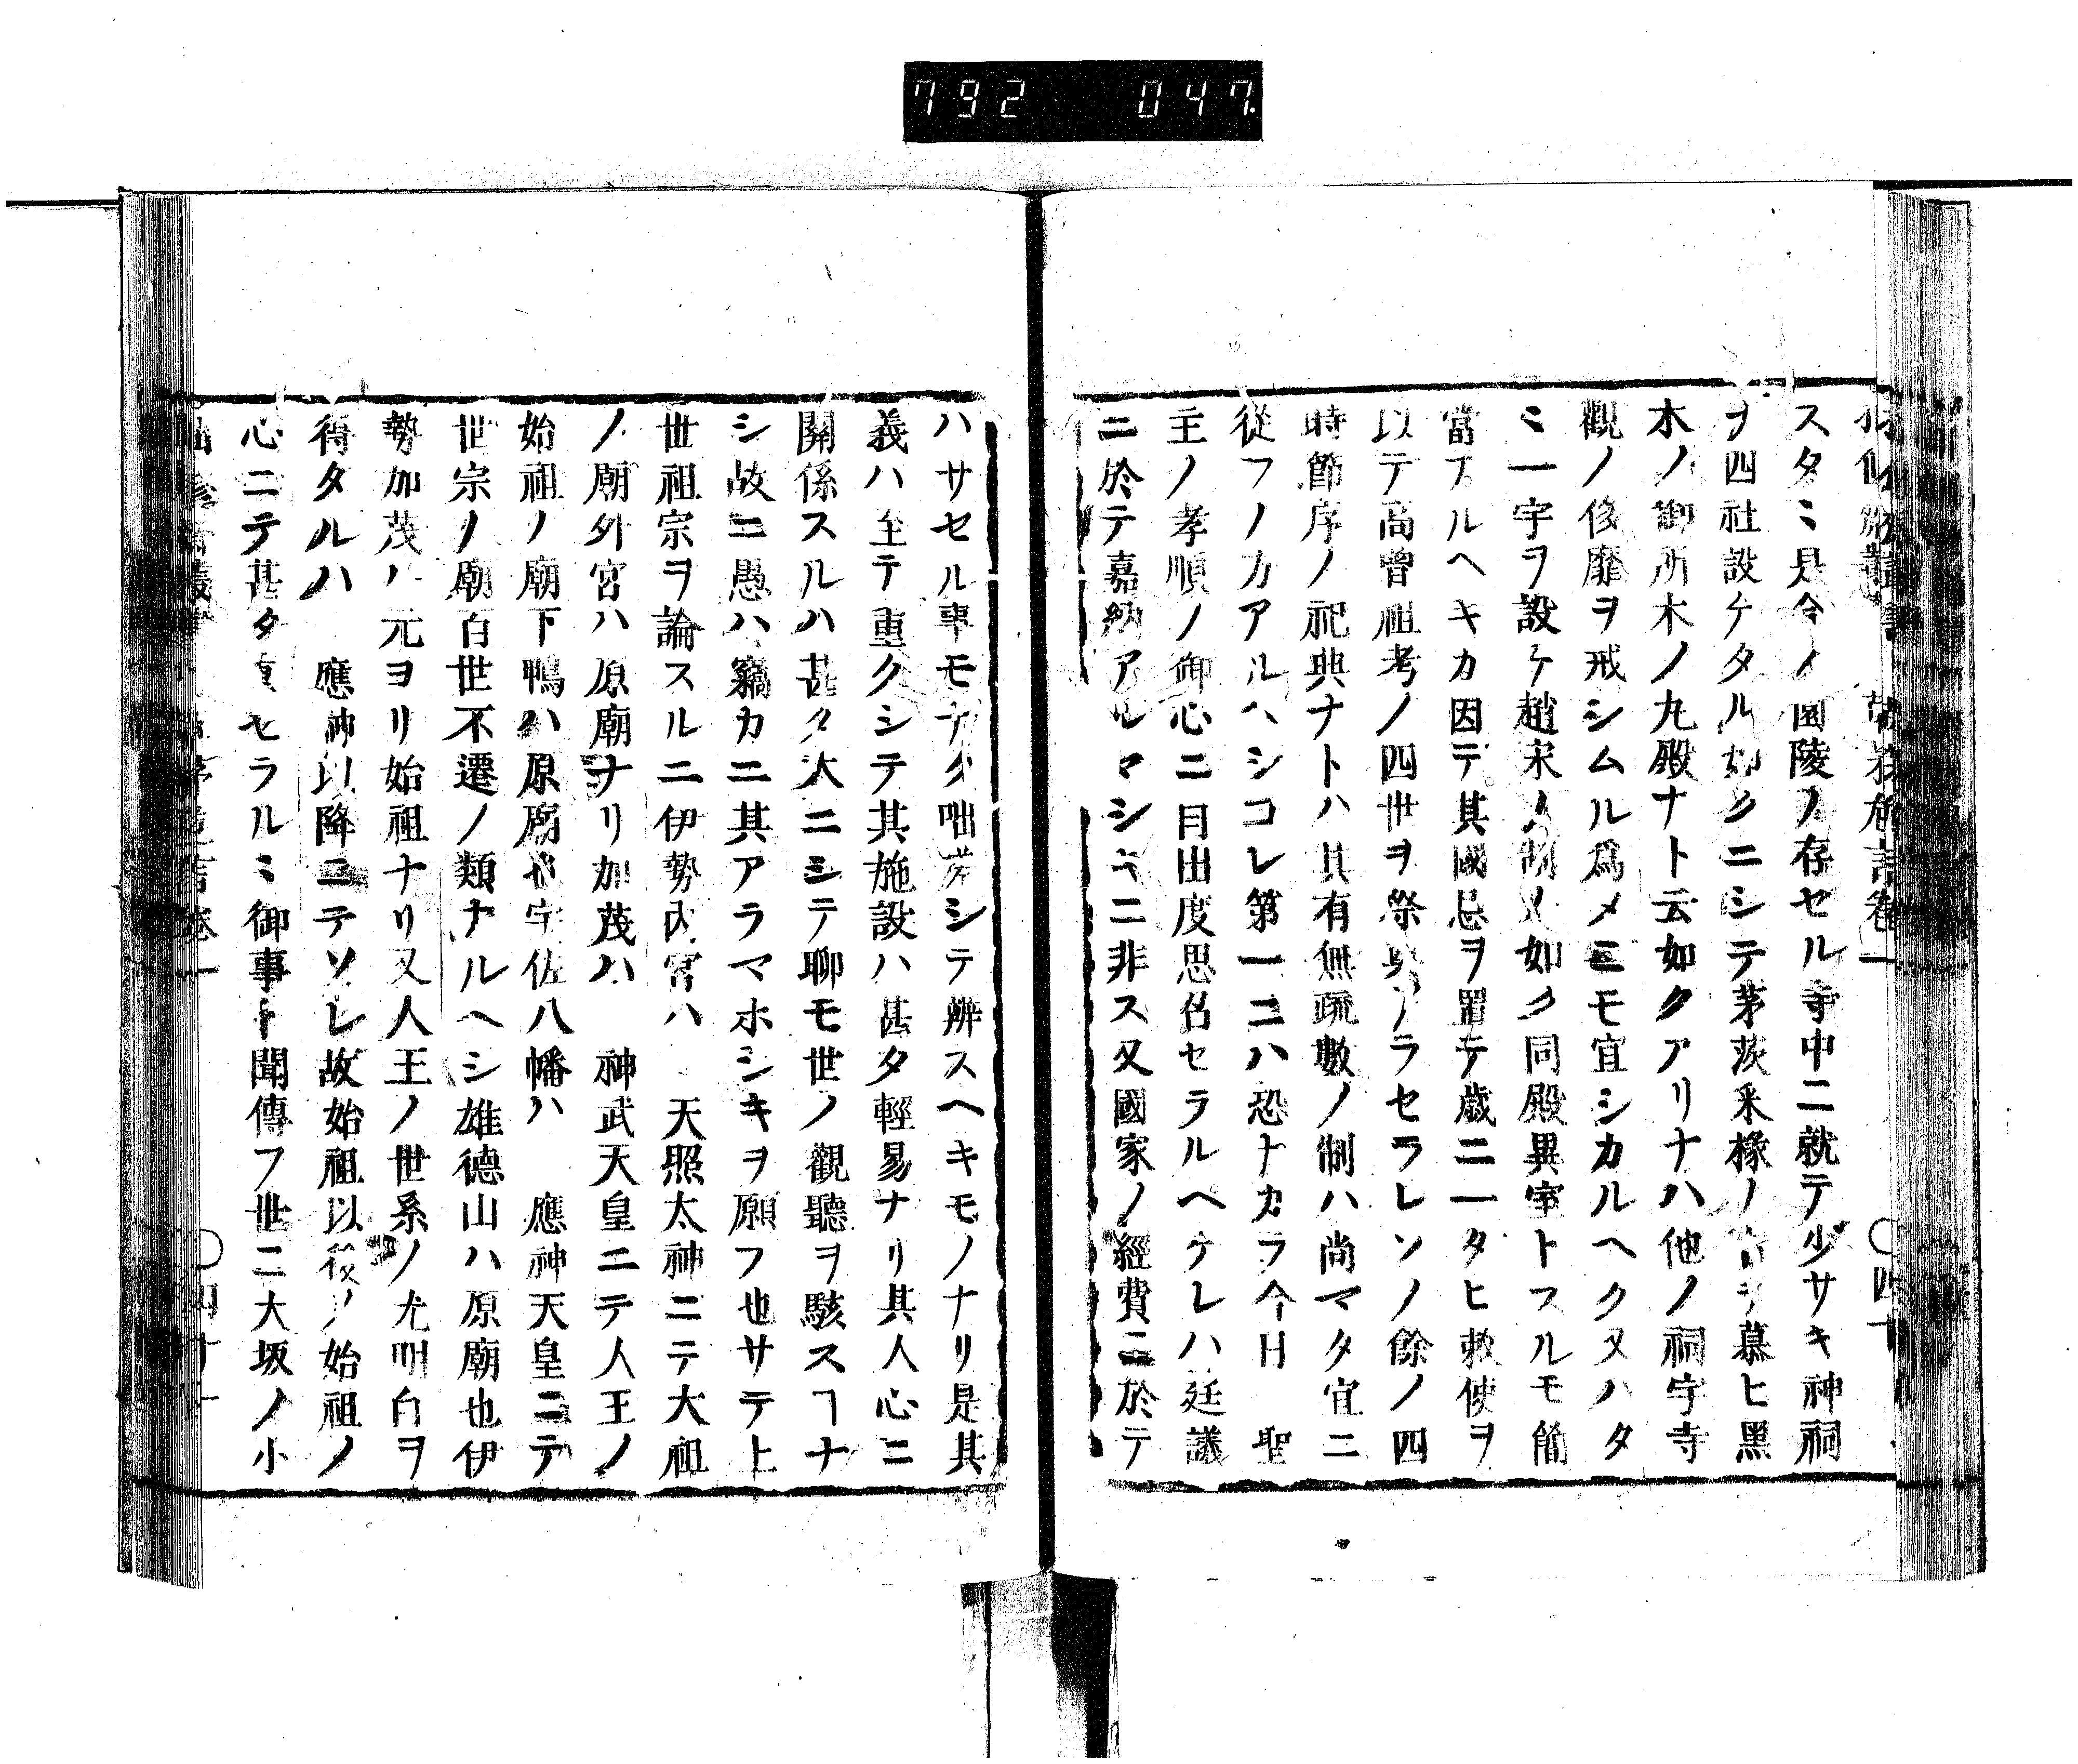 792 047
スタミ是今ノ園陵ノ存セル寺中ニ就テ少サキ神祠
ヲ四社設ケタル如クニシテ茅茨釆椽ノ ヲ慕ヒ黑
木ノ御所木ノ丸殿ナト云如クアリナハ他ノ祠宇寺
觀ノ侈靡ヲ戒シムル爲メニモ宜シカルヘク又ハタ
ミ一宇ヲ設ケ趙宋ノ制ノ如ク同殿異室トスルモ簡
當ナルヘキカ因テ其國忌ヲ置テ歲ニ一タヒ敕使ヲ
以テ高曾祖考ノ四世ヲ祭 ラセラレソノ餘ノ四
時節序ノ祀典ナトハ其有無疏數ノ制ハ尚マタ宜ニ
從フノカアルヘシコレ第一ニハ恐ナカラ今日 聖
主ノ孝順ノ御心ニ目出度思召セラルヘケレハ廷議
ニ於テ嘉納アルマシキニ非ス又國家ノ經費ニ於テ
ハサセル事モナク咄嗟シテ辨スヘキモノナリ是其
義ハ至テ重クシテ其施設ハ甚タ輕易ナリ其人心ニ
關係スルハ甚タ大ニシテ聊モ世ノ觀聽ヲ駭スヿナ
シ故ニ愚ハ竊カニ其アラマホシキヲ願フ也サテ上
世祖宗ヲ論スルニ伊勢内宮ハ 天照太神ニテ大祖
ノ廟外宮ハ原廟ナリ加茂ハ 神武天皇ニテ人王ノ
始祖ノ廟下鴨ハ原廟也宇佐八幡ハ 應神天皇ニテ
世宗ノ廟百世不遷ノ類ナルヘシ雄德山ハ原廟也伊
勢加茂ハ元ヨリ始祖ナリ又人王ノ世系ノ尤明白ヲ
得タルハ 應神以降ニテソレ故始祖以後ノ始祖ノ
心ニテ甚タ重セラルミ御事ト聞傳フ世ニ大坂ノ小